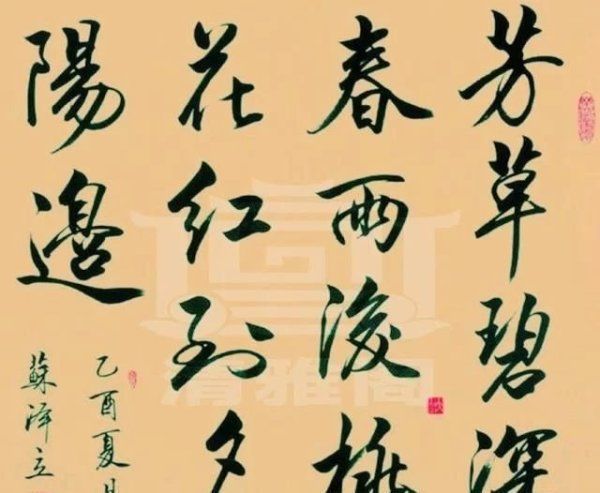 芳草碧深
春雨後桃
花红到夕
陽邊
乙酉夏月
蘇泽立
清雅阁